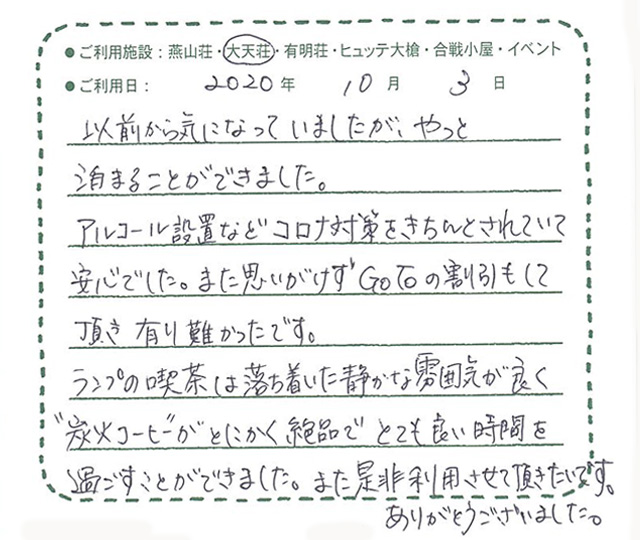 ●ご利用施設：燕山荘・大天荘・有明荘・ヒュッテ大槍・合戦小屋・イベント
●ご利用日： 2020年 10月 3日
以前から気になっていましたが、やっと
泊まることができました。
アルコール設置などコロナ対策をきちんとされていて
安心でした。また思いがけずGoToの割引もして
頂き有り難かったです。
ランプの喫茶は落ち着いた静かな雰囲気が良く
"炭火コーヒー"がとにかく絶品でとても良い時間を
過ごすことができました。また是非利用させて頂きたいです。
ありがとうございました。